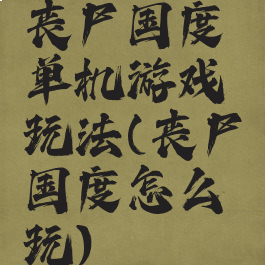 丧尸国度
单机游戏
玩法(丧尸
国度怎么
玩)